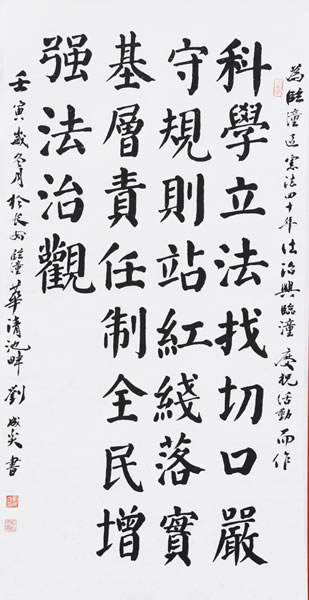 為臨潼迎憲法四十年法治興臨潼慶祝活動而作
科學立法找切口嚴
守規則站紅綫落實
基層責任制全民增
强法治觀
壬寅歲冬月於長安臨潼華清池畔劉成炎書